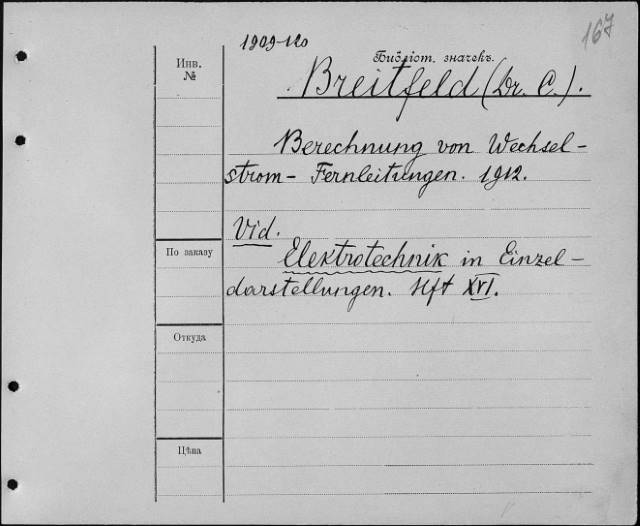 167
1909-120
Инв.
№
Библіот. значекъ.
Breitfeld (Dr. C.).
Berechnung von Wechsel-
strom- Fernleitungen. 1912.
Vid.
Elektrotechnik in Einzel-
darstellungen. Hft XVI.
По заказу
Откуда
Цѣна